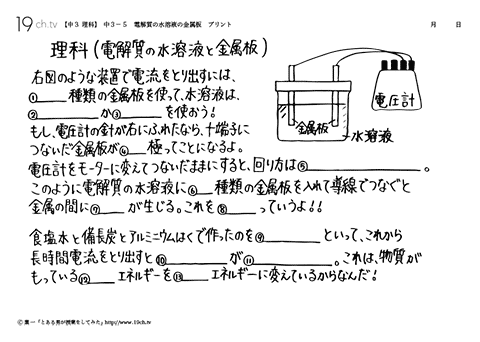 19ch.tv 【中3 理科】 中3-5 電解質の水溶液の金属板 プリント 月 日
理科(電解質の水溶液と金属板)
右図のような装置で電流をとり出すには、
①___種類の金属板を使って、水溶液は、
②______か③______を使おう!
もし、電圧計の針が右にふれたなら、+端子に
つないだ金属板が④__極ってことになるよ。
電圧計をモーターに変えてつないだままにすると、回り方は⑤__________。
このように電解質の水溶液に⑥__種類の金属板を入れて導線でつなぐと
金属の間に⑦___が生じる。これを⑧___っていうよ!!
食塩水と備長炭とアルミニウムはくで作ったのを⑨______といって、これから
長時間電流をとり出すと⑩______が⑪________。これは、物質が
もっている⑫__エネルギーを⑬__エネルギーに変えているからなんだ!
電圧計
金属板
水溶液
© 葉一「とある男が授業をしてみた」http://www.19ch.tv